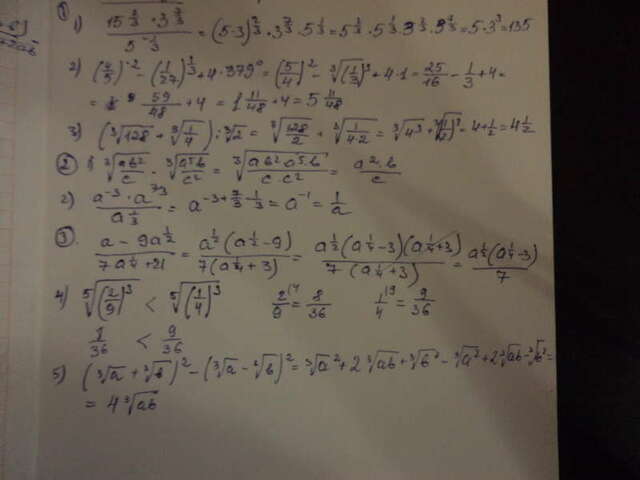 ① 1) (15^(2/3) · 3^(7/3)) / 5^(-1/3) = (5·3)^(2/3) · 3^(7/3) · 5^(1/3) = 5^(2/3) · 5^(1/3) · 3^(2/3) · 3^(7/3) = 5 · 3³ = 135
2) (4/5)^(-2) - (1/27)^(1/3) + 4 · 379° = (5/4)² - ∛(1/3)³ + 4·1 = 25/16 - 1/3 + 4 =
= 59/48 + 4 = 1 11/48 + 4 = 5 11/48
3) (∛128 + ∛(1/4)) : ∛2 = ∛(128/2) + ∛(1/(4·2)) = ∛4³ + ∛(1/2)³ = 4 + 1/2 = 4 1/2
② 1) ∛(ab²/c) · ∛(a⁵b/c²) = ∛(ab²a⁵b/(c·c²)) = a²·b/c
2) (a^(-3) · a^(7/3)) / a^(1/3) = a^(-3+7/3-1/3) = a^(-1) = 1/a
③. (a - 9a^(1/2)) / (7a^(1/4) + 21) = a^(1/2)(a^(1/2) - 9) / 7(a^(1/4) + 3) = a^(1/2)(a^(1/4) - 3)(a^(1/4) + 3) / 7(a^(1/4) + 3) = a^(1/2)(a^(1/4) - 3) / 7
4) ⁵√(2/9)³ < ⁵√(1/4)³ 2/9 = 8/36 1/4 = 9/36
8/36 < 9/36
5) (∛a + ∛b)² - (∛a - ∛b)² = ∛a² + 2∛ab + ∛b² - ∛a² + 2∛ab - ∛b² =
= 4∛ab